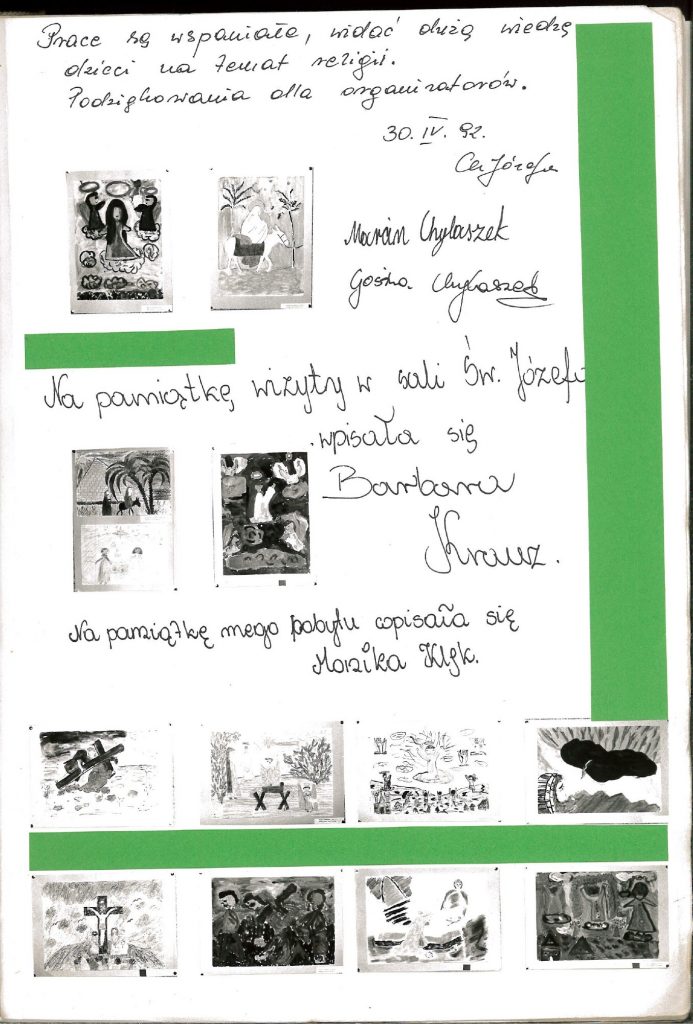 Prace są wspaniałe, widać dużą wiedzę
dzieci na temat religii.
Podziękowania dla organizatorów.
30. IV. 92.
Marcin Chylaszek
Gośka Chylaszek
Na pamiątkę wizyty w sali Św. Józefa
wpisała się
Barbara
Krauz.
Na pamiątkę mego pobytu wpisała się
Monika